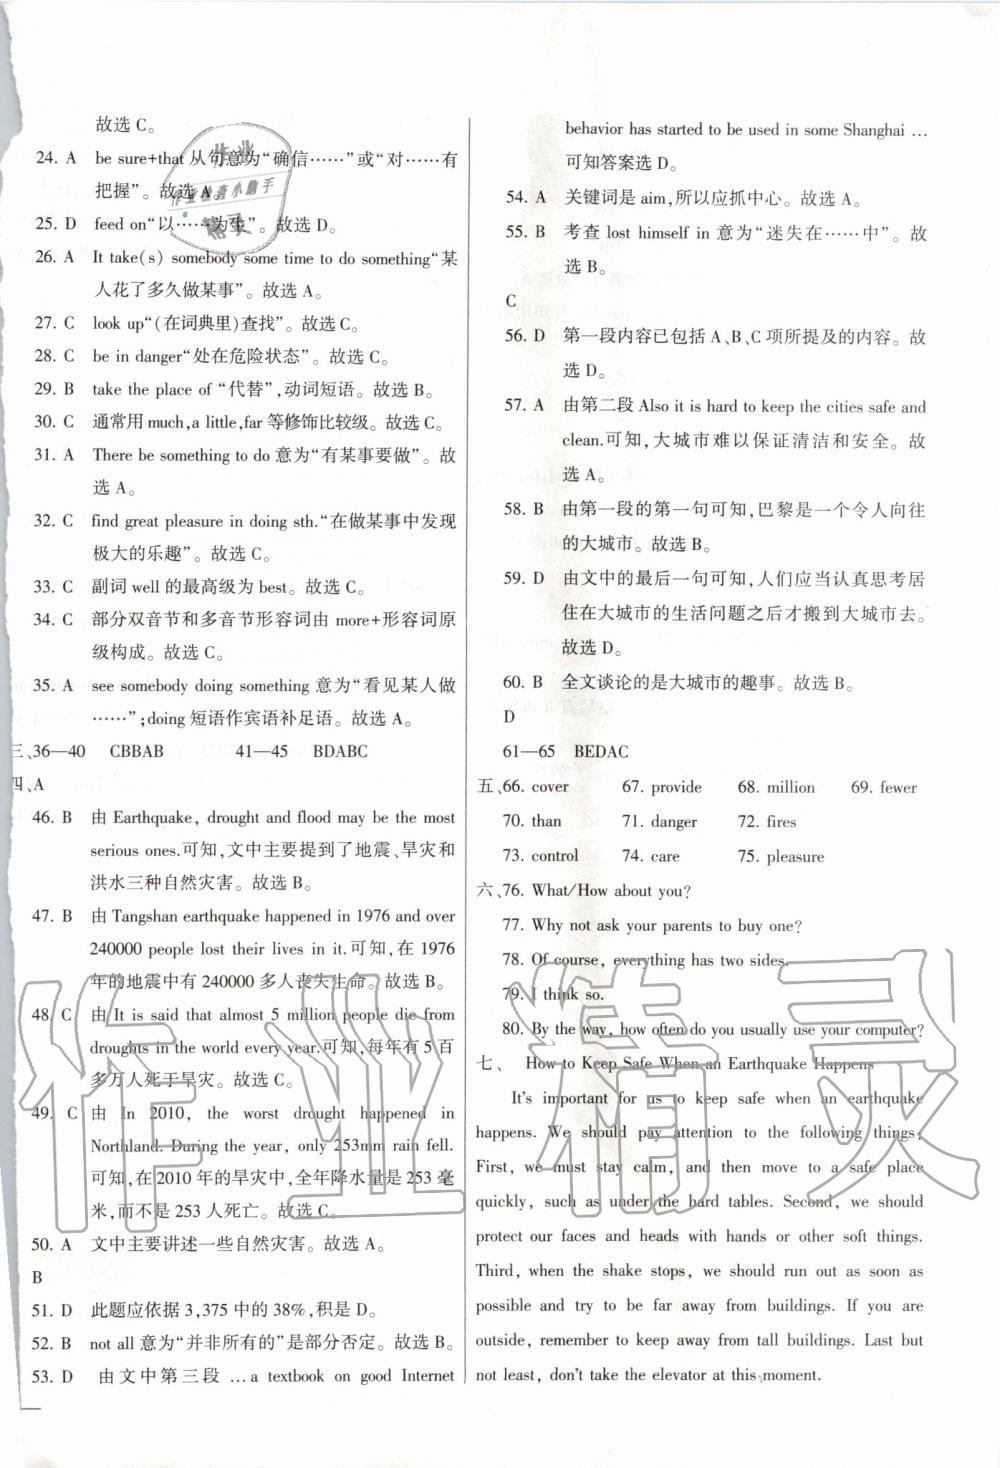 故选 C。
24. A be sure+that 从句意为“确信……”或“对……有
把握”。故选 A。
25. D feed on“以……为生”。故选 D。
26. A It take(s) somebody some time to do something“某
人花了多久做某事”。故选 A。
27. C look up“(在词典里)查找”。故选 C。
28. C be in danger“处在危险状态”。故选 C。
29. B take the place of “代替”,动词短语。故选 B。
30. C 通常用 much,a little,far 等修饰比较级。故选 C。
31. A There be something to do 意为“有某事要做”。故
选 A。
32. C find great pleasure in doing sth.“在做某事中发现
极大的乐趣”。故选 C。
33. C 副词 well 的最高级为 best。故选 C。
34. C 部分双音节和多音节形容词由 more+形容词原
级构成。故选 C。
35. A see somebody doing something 意为“看见某人做
……”;doing 短语作宾语补足语。故选 A。
三、36—40 CBBAB 41—45 BDABC
四、A
46. B 由 Earthquake, drought and flood may be the most
serious ones.可知,文中主要提到了地震、旱灾和
洪水三种自然灾害。故选 B。
47. B 由 Tangshan earthquake happened in 1976 and over
240000 people lost their lives in it.可知,在 1976
年的地震中有 240000 多人丧失生命。故选 B。
48. C 由 It is said that almost 5 million people die from
droughts in the world every year.可知,每年有 5 百
多万人死于旱灾。故选 C。
49. C 由 In 2010, the worst drought happened in
Northland. During the year, only 253mm rain fell.
可知,在 2010 年的旱灾中,全年降水量是 253 毫
米,而不是 253 人死亡。故选 C。
50. A 文中主要讲述一些自然灾害。故选 A。
B
51. D 此题应依据 3,375 中的 38%,积是 D。
52. B not all 意为“并非所有的”是部分否定。故选 B。
53. D 由文中第三段 …a textbook on good Internet
behavior has started to be used in some Shanghai …
可知答案选 D。
54. A 关键词是 aim,所以应抓中心。故选 A。
55. B 考查 lost himself in 意为“迷失在……中”。故
选 B。
C
56. D 第一段内容已包括 A、B、C 项所提及的内容。故
选 D。
57. A 由第二段 Also it is hard to keep the cities safe and
clean.可知,大城市难以保证清洁和安全。故
选 A。
58. B 由第一段的第一句可知,巴黎是一个令人向往
的大城市。故选 B。
59. D 由文中的最后一句可知,人们应当认真思考居
住在大城市的生活问题之后才搬到大城市去。
故选 D。
60. B 全文谈论的是大城市的趣事。故选 B。
D
61—65 BEDAC
五、66. cover 67. provide 68. million 69. fewer
70. than 71. danger 72. fires
73. control 74. care 75. pleasure
六、76. What/How about you?
77. Why not ask your parents to buy one?
78. Of course, everything has two sides.
79. I think so.
80. By the way, how often do you usually use your computer?
七、 How to Keep Safe When an Earthquake Happens
It's important for us to keep safe when an earthquake
happens. We should pay attention to the following things:
First, we must stay calm, and then move to a safe place
quickly, such as under the hard tables. Second, we should
protect our faces and heads with hands or other soft things.
Third, when the shake stops, we should run out as soon as
possible and try to be far away from buildings. If you are
outside, remember to keep away from tall buildings. Last but
not least, don't take the elevator at this moment.
作业精灵
作业
作业检查小助手
精灵